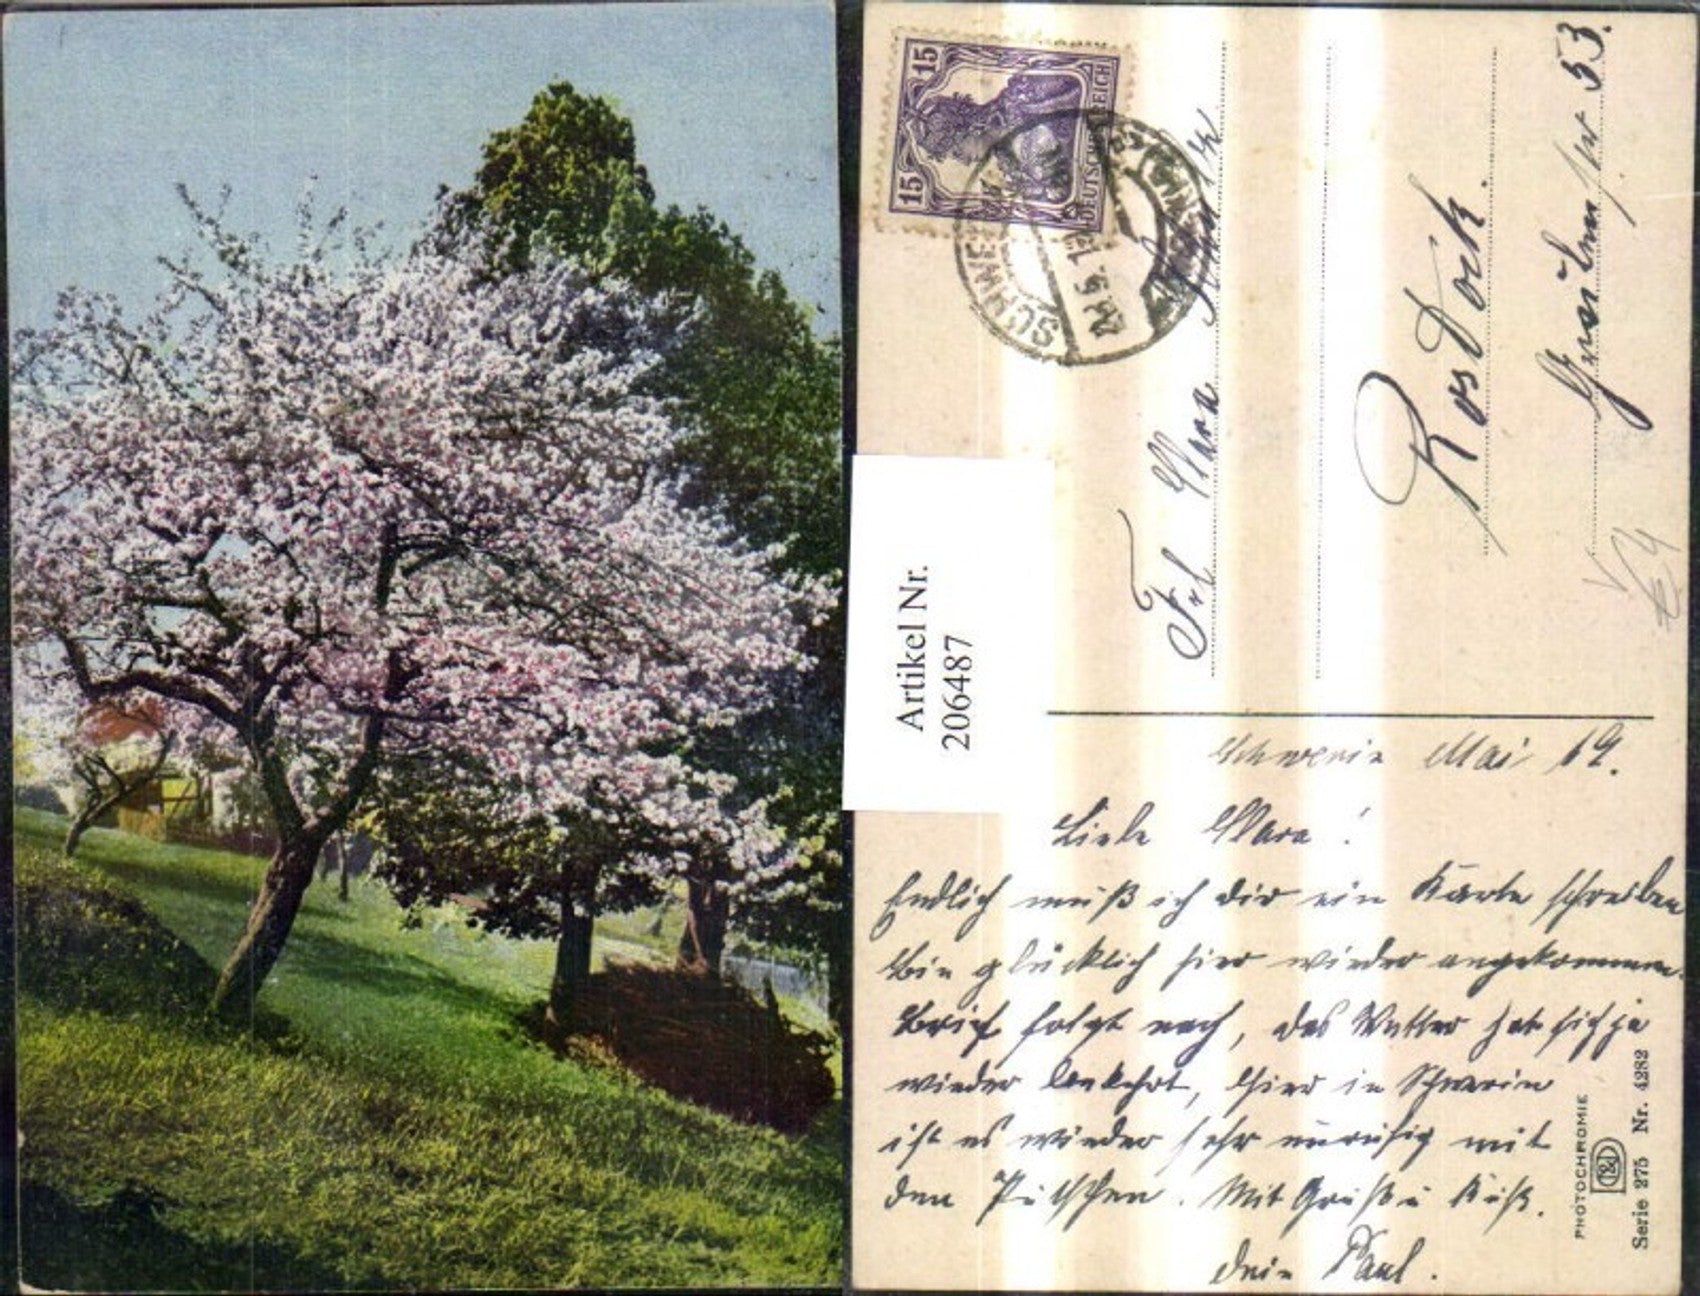 15
15
DEUTSCHES REICH
SCHWERIN
Frl Clara
Rostock.
53.
Artikel Nr.
206487
Schwerin Mai 19.
Liebe Clara!
Endlich muß ich dir ein Karte schreiben
Bin glücklich hier wieder angekommen.
Brief folgt nach, das Wetter hat sich ja
wieder bekehrt, Hier in Schwerin
ist es wieder sehr unruhig mit
den Putschen. Mit Gruß u Kuß.
dein Paul.
PHOTOCHROMIE
Serie 275 Nr. 4282